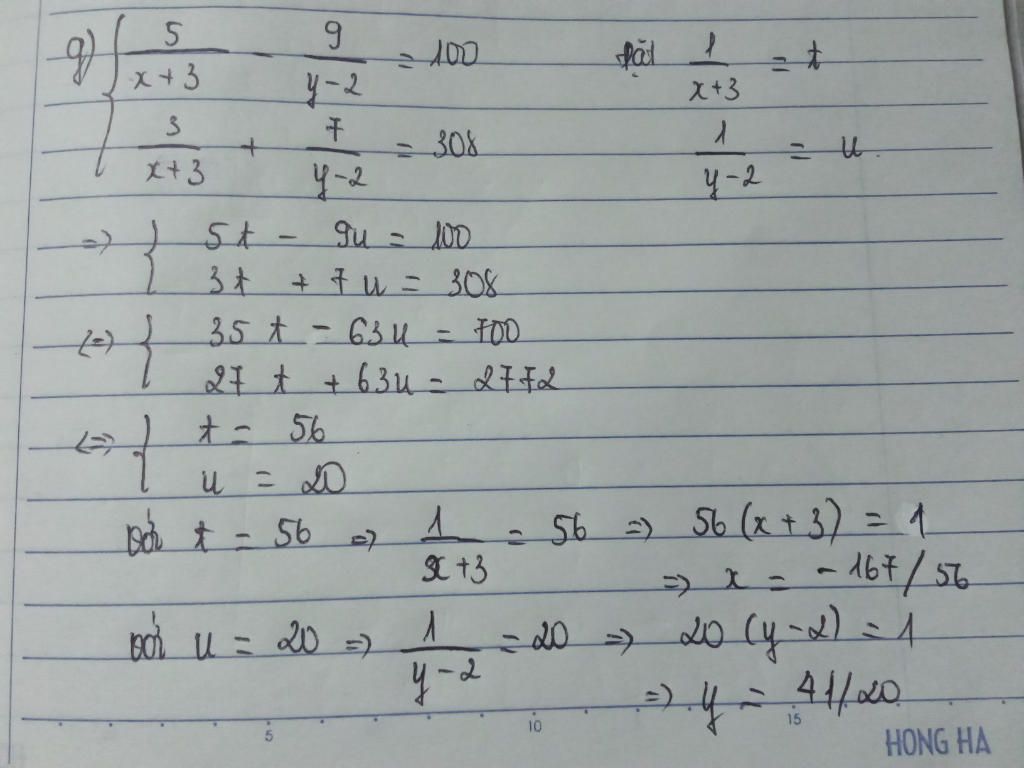 g) { 5/(x+3) - 9/(y-2) = 100 đặt 1/(x+3) = t
3/(x+3) + 7/(y-2) = 308 1/(y-2) = u.
=> { 5t - 9u = 100
3t + 7u = 308
<=> { 35t - 63u = 700
27t + 63u = 2772
<=> { t = 56
u = 20
với t = 56 => 1/(x+3) = 56 => 56(x+3) = 1
=> x = -167/56
với u = 20 => 1/(y-2) = 20 => 20(y-2) = 1
=> y = 41/20
5 10 15
HONG HA